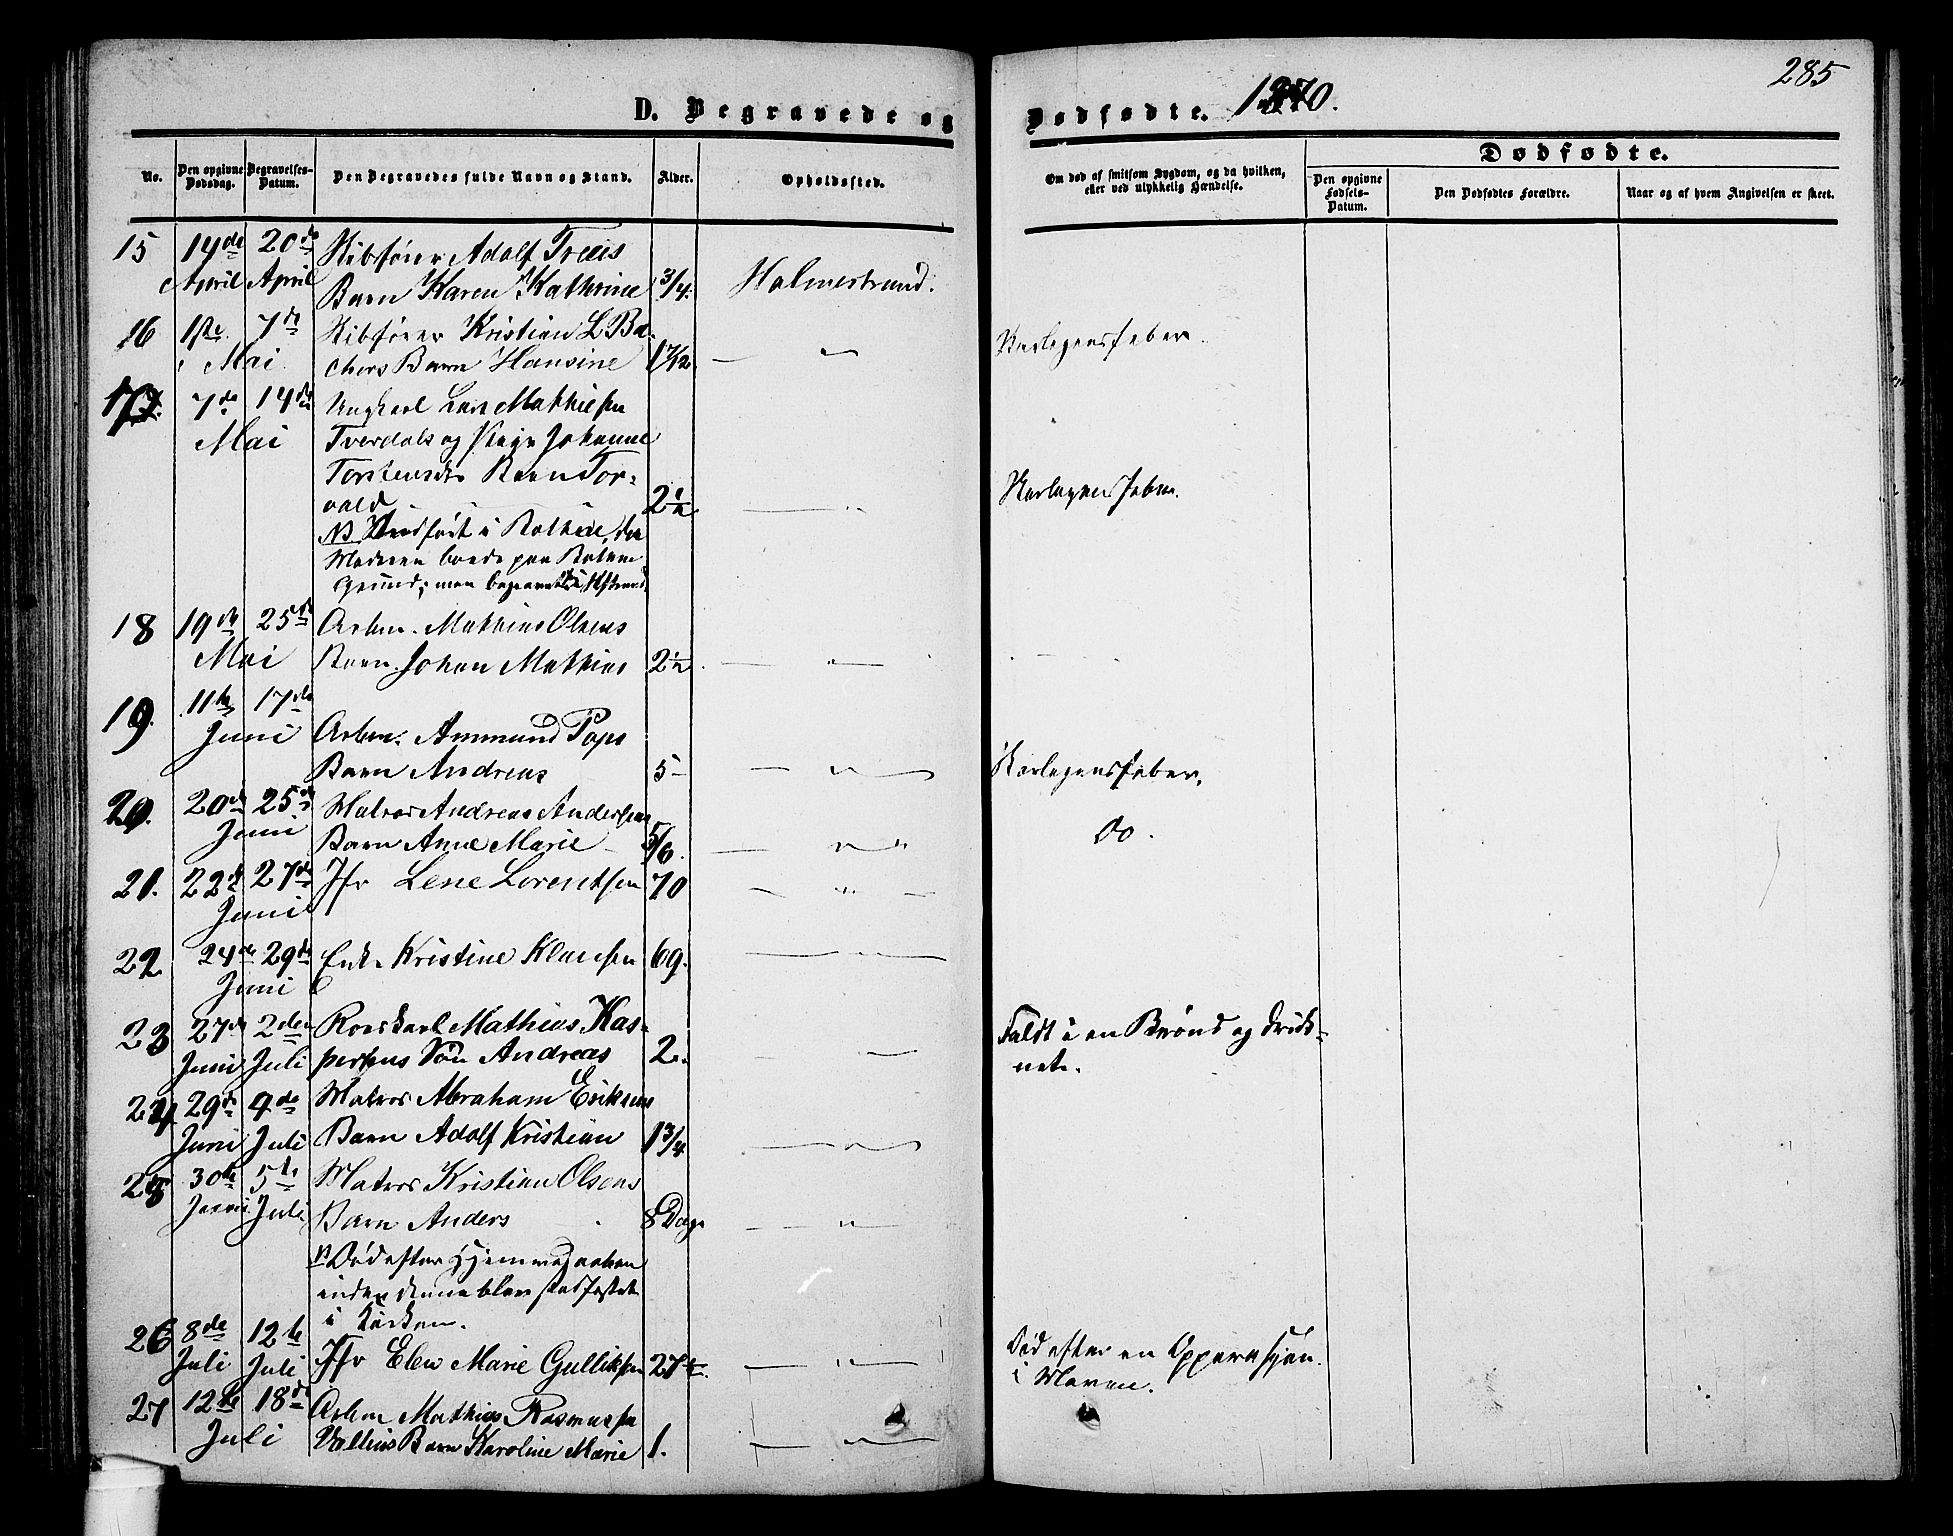 285
D. Begravede og Dødfødte. 1870.
No. Den opgivne Dødsdag. Begravelses-Datum. Den Begravedes fulde Navn og Stand. Alder. Opholdssted. Om død af smitsom Sygdom, og da hvilken, eller ved ulykkelig Hændelse.
Dødfødte.
Den opgivne Fødsels-Datum. Den Dødfødtes Forældre. Naar og af hvem Angivelsen er skeet.
15 14de April 20de April Skibsfører Adolf
Barn Karen Kathrine 3/4. Holmestrand.
16 1ste Mai 7de Skibsfører Kristian L Ba-
chers Barn Hansine 1 7/12 — " Skarlagensfeber.
17. 7de Mai 14de Ungkarl Lars Mathiesen
Tverdals og Pige Johanne
Torstensdtr Barn Tor-
vald 2 1/2 — " Skarlagensfeber.
NB i Bothne, da
Moderen boede paa Bothne
Grund; men begravet i
18 19de Mai 25de Arbm. Mathias Olsens
Barn Johan Mathias 2 1/2 — "
19. 11te Juni 17de Arbm. Ammund Pops
Barn Andreas 5 — " — Skarlagensfeber.
20. 20de Juni 25de Matros Andreas Andersens
Barn Anne Marie 5/6. — " Do.
21. 22de Juni 27de Jfr Lene Lorentsen 70 — " —
22 24de Juni 29de Enke Kristine Klausen 69. — " —
23 27de Juni 2den Juli Mathias Kas-
persens Søn Andreas 2. — " Faldt i en Brønd og druk-
nede.
24 29de Juni 9de Juli Matros Abraham Eriksens
Barn Adolf Kristian 1 3/4 — " —
25 30te Juni 5te Juli Matros Kristian Olsens
Barn Anders 8 Dage — " —
Død efter Hjemmedaaben
inden denne blev stadfæstet
i Kirken.
26 8de Juli 12te Juli Jfr Elen Marie Gulliksen 27 — " — Død efter en Opperasjon
i Maven.
27 12te Juli 18de Arbm Mathias Rasmussen
Barn Karoline Marie 1. — " —